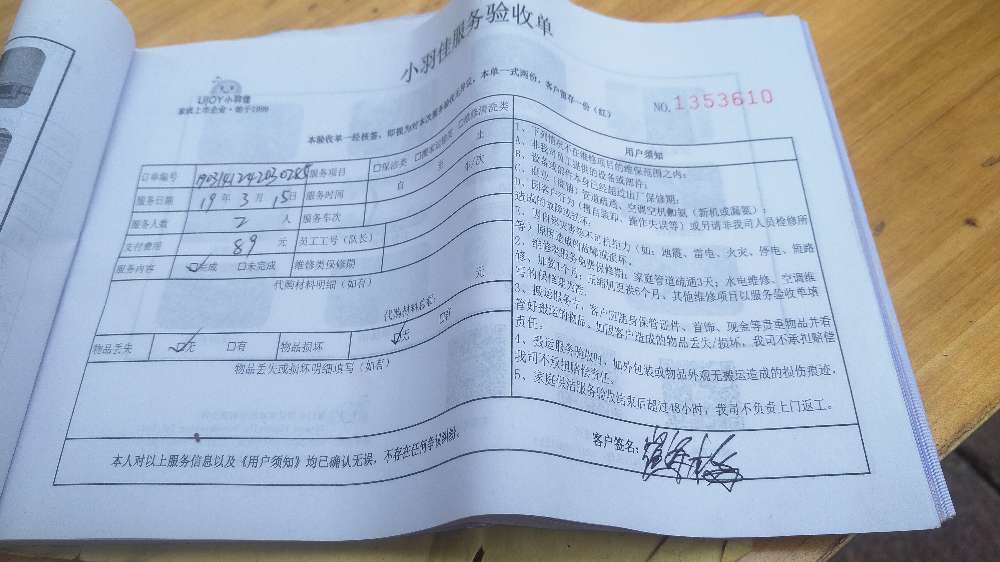 小羽佳服务验收单
UJOY小羽佳
家政上市企业·始于1999
NO.1353610
本验收单一经核签，即视为对本次服务验收无异议，本单一式两份，客户留存一份（红）
订单编号
服务项目 □保洁类 □搬家运输类 □维修清洗类
服务日期 19年3月15日 服务时间 自 至 止
服务人数 2 人 服务车次 车/次
支付费用 89 元 员工工号（队长）
服务内容 ☑完成 □未完成 维修类保修期
代购材料明细（如有）
代购材料合计： 元
物品丢失 ☑无 □有 物品损坏 ☑无 □有
物品丢失或损坏明细填写（如有）
用户须知
1、下列情况不在维修项目的维保范围之内：
A、非我司员工提供的设备或部件；
B、设备或部件本身已经超过出厂保修期；
管道疏通、调空空机加氨（新机或漏氨）；
D、因客户行为（擅自装卸、操作失误等）或另请非我司人员检修所
造成的故障或损坏；
（如：地震、雷电、火灾、停电、短路
等）原因造成的故障或损坏。
2、维修类服务免费保修期：家庭管道疏通3天，水电维修、空调维
修、加氨1个月，压缩机更换6个月，其他维修项目以服务验收单填
写的保修期为准。
3、搬运服务中，客户应随身保管证件、首饰、现金等贵重物品并看
管好搬运的物品，如因客户造成的物品丢失/损坏，我司不承担赔偿
责任；
4、搬运服务验收时，如外包装或物品外观无搬运造成的损伤痕迹，
我司不承担赔偿责任。
5、家庭保洁服务验收结束后超过48小时，我司不负责上门返工。
本人对以上服务信息以及《用户须知》均已确认无误，不存在任何争议纠纷。
客户签名：